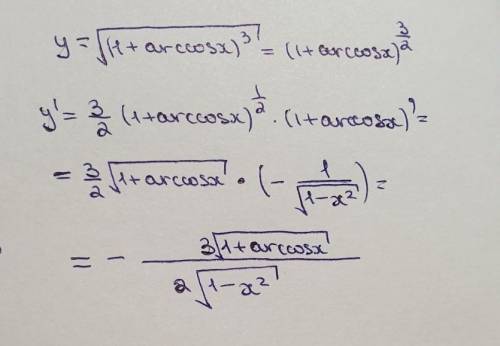 y = √((1+arccosx)³) = (1+arccosx)^(3/2)
y' = 3/2 (1+arccosx)^(1/2) · (1+arccosx)' =
= 3/2 √(1+arccosx) · (- 1/√(1-x²)) =
= - 3√(1+arccosx) / 2√(1-x²)